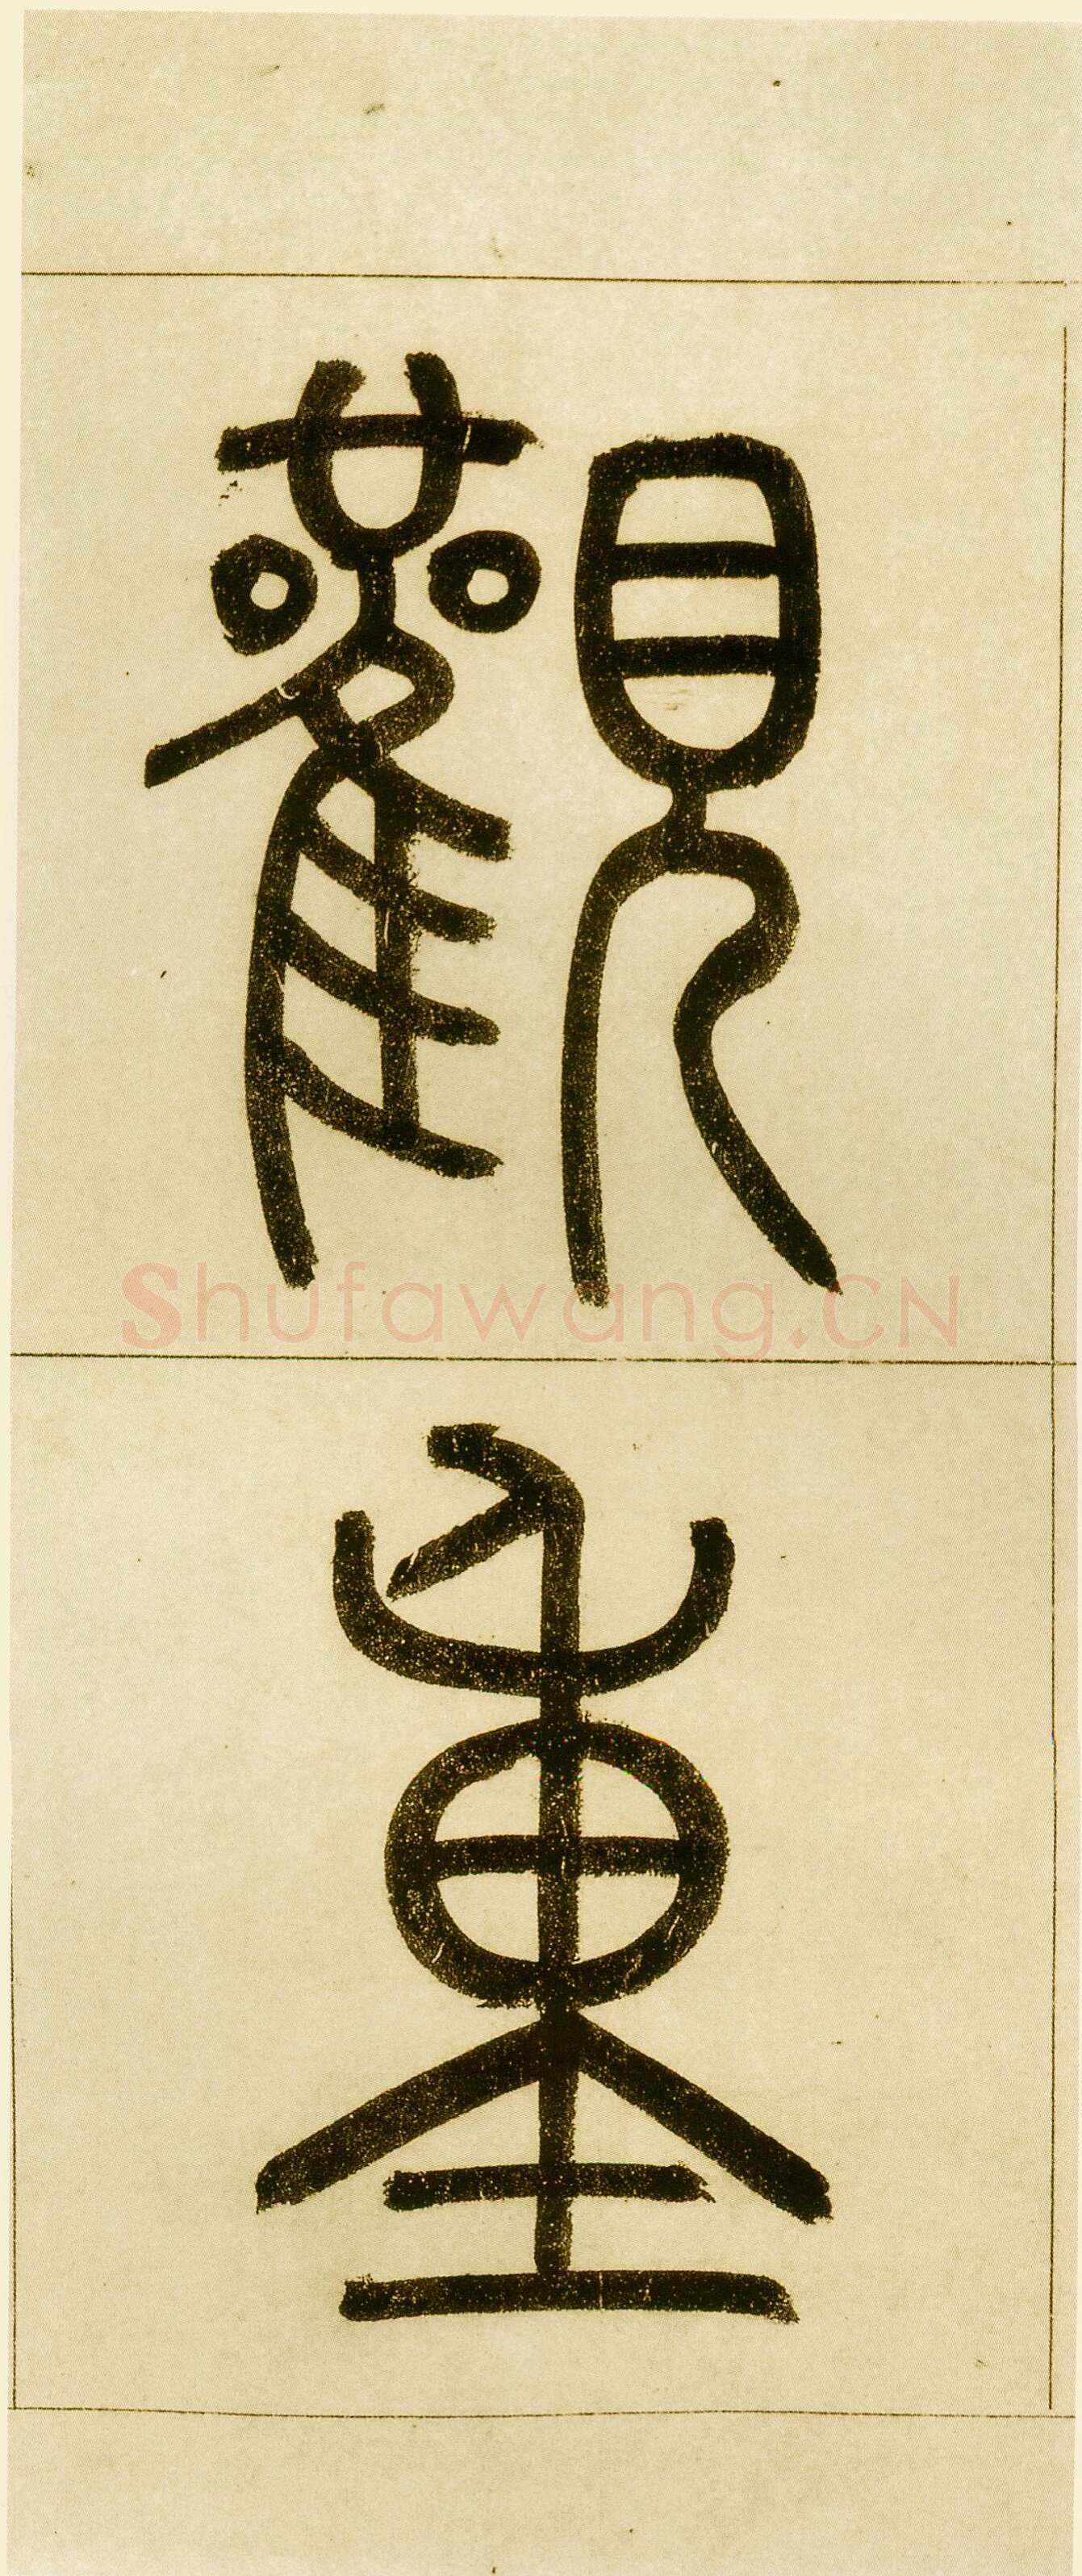 觀
重
Shufawang.CN